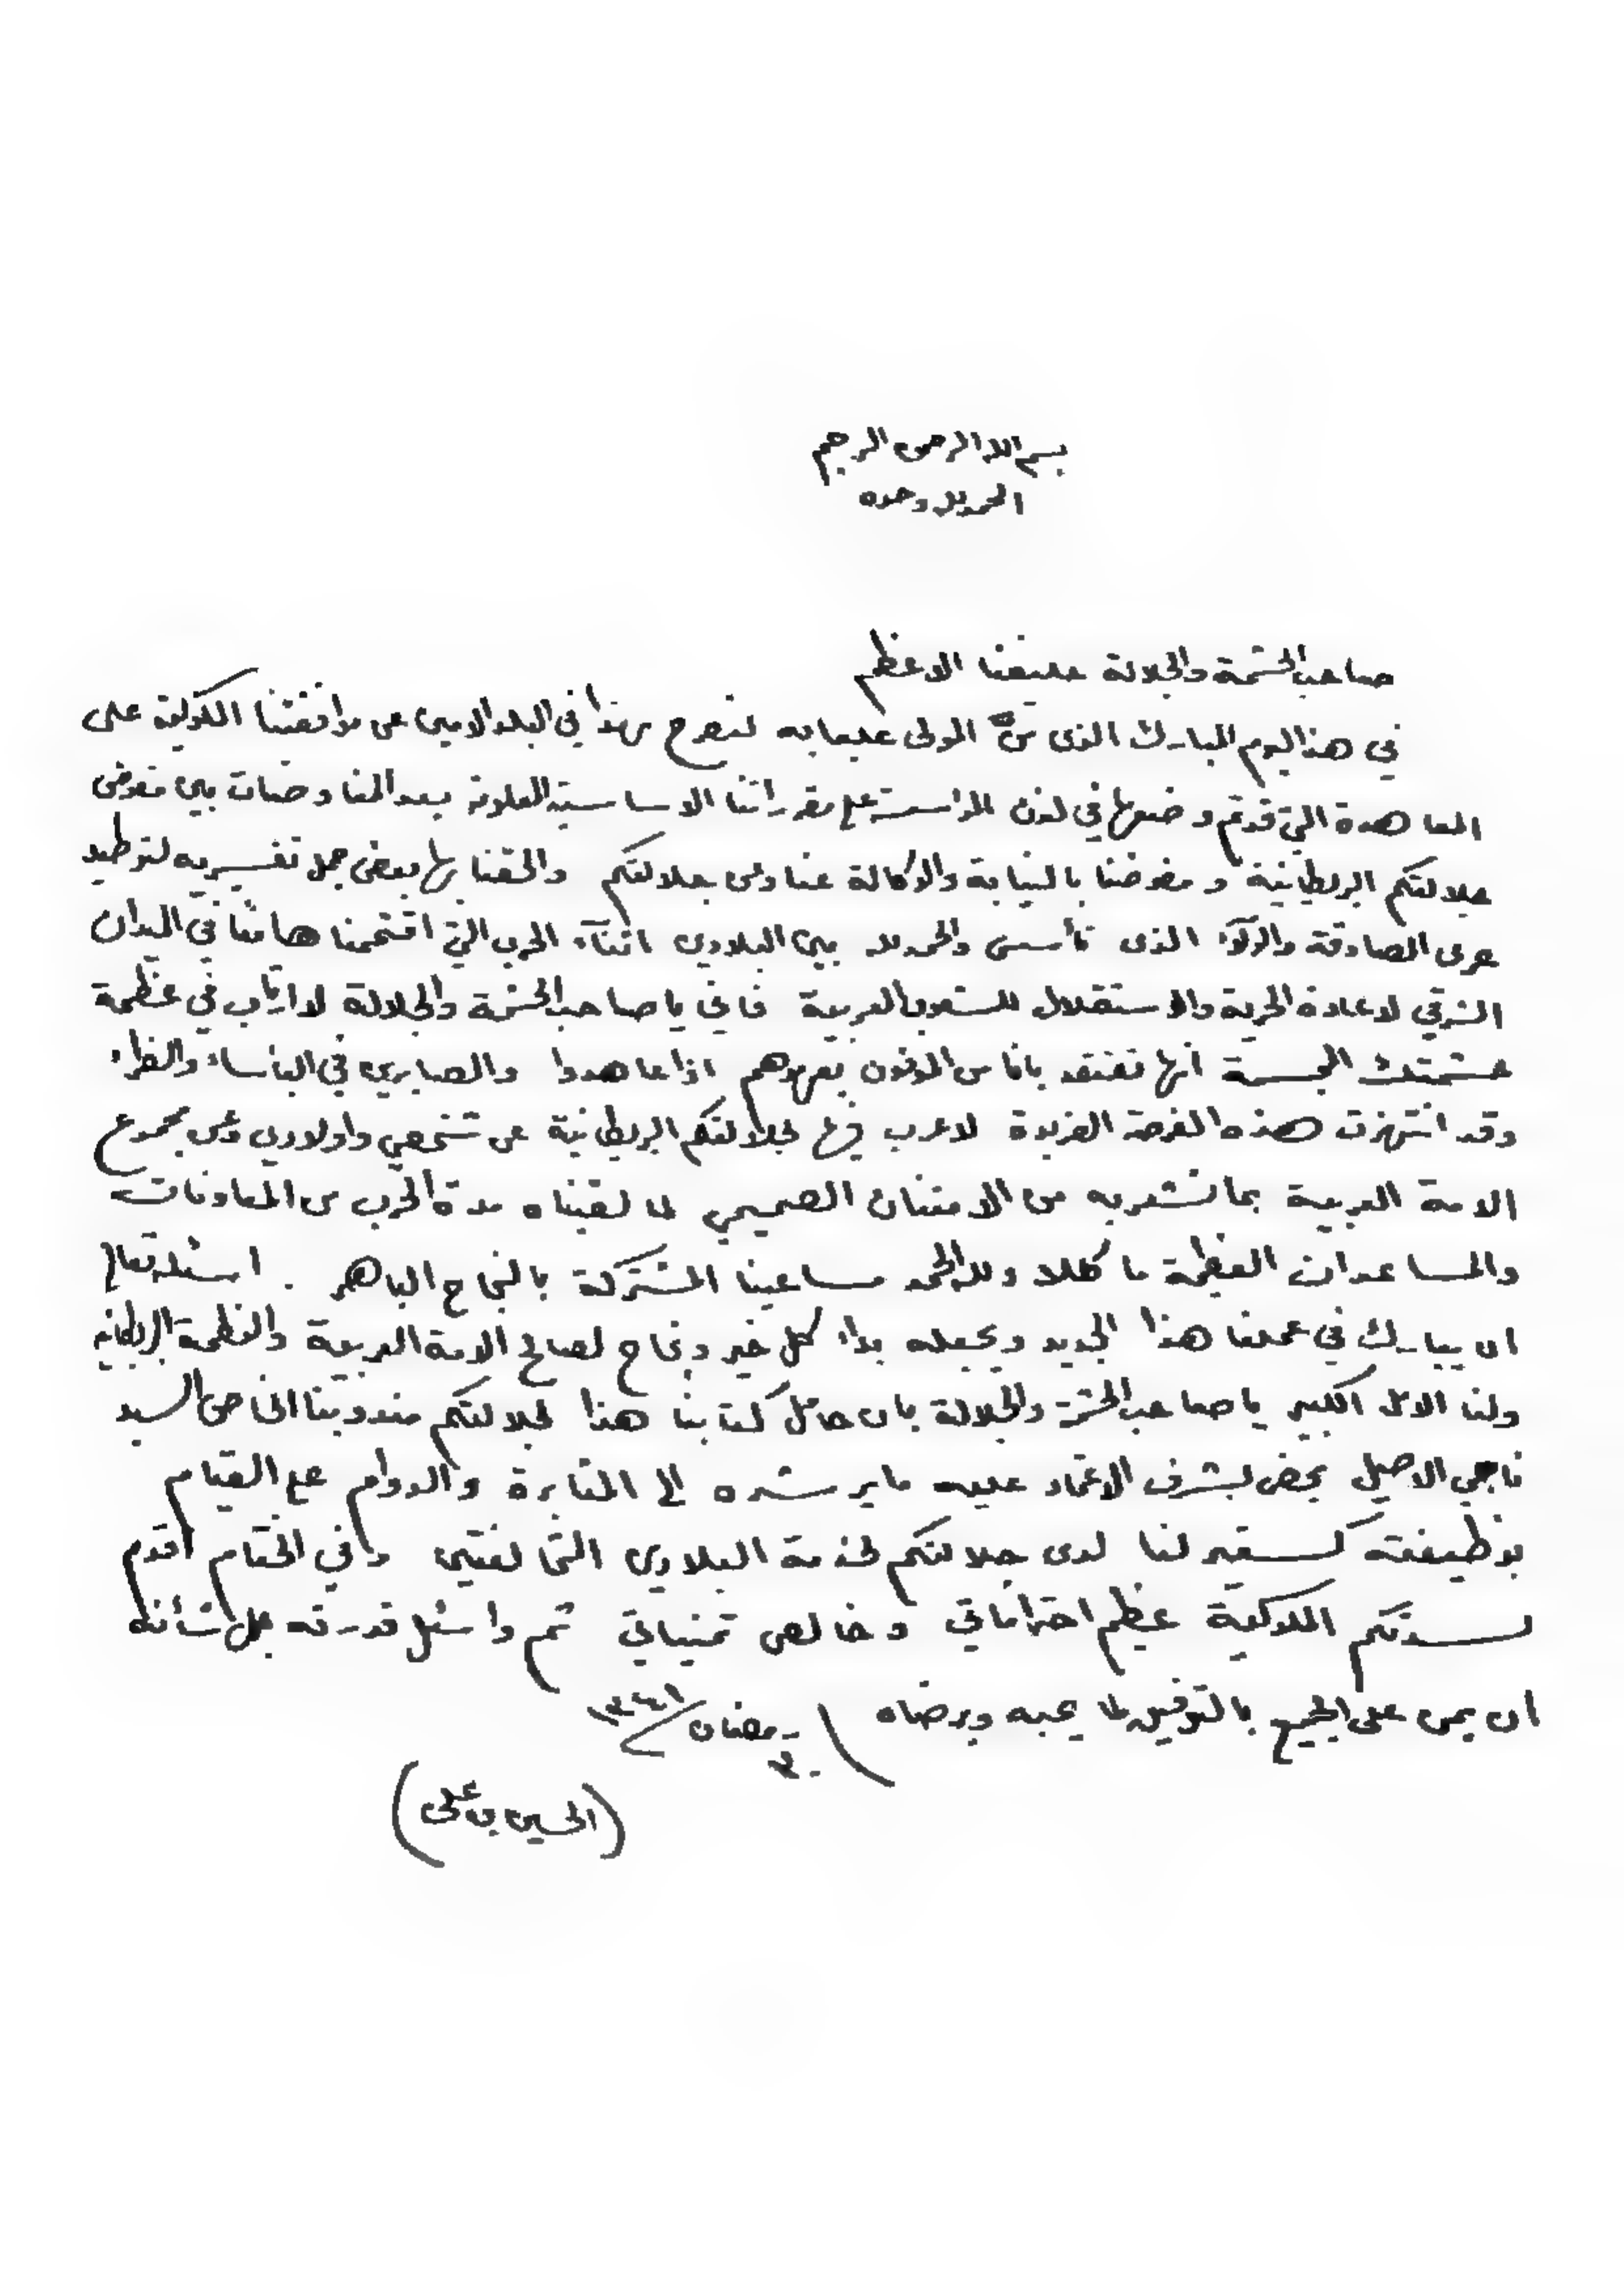 بسم الله الرحمن الرحيم
الحمد لله وحده
صاحب الحشمة والجلالة حليفنا الاعظم
في هذا اليوم المبارك الذى منّ المولى علينا به لنصرح بهذا في البلد الامين عن موافقتنا الملوكية على
المعاهدة التي قد تم وضعها في لندن المؤسسة على مقرراتنا الاساسية المعلومة بعد المفاوضات بين مفوض
جلالتكم البريطانية و مفوضنا بالنيابة والوكالة عنا وعن جلالتكم والحقنا بها بعض جمل تفسيريه لتوطيد
عرى الصداقة والولاء الذى تأسس والحمد لله بين البلادين اثناء الحرب التي اقتحمنا هامعًا في الميدان
الشرقي لاعادة الحرية والاستقلال للشعوب العربية فاني يا صاحب الحشمة والجلالة لا ارتاب في عظمة
حشمتك انها تعتقد باننا من الموفون بعهدهم اذا عاهدوا والصابرين في البأساء والضراء
وقد انتهزت هذه الفرصة الفريدة لاعرب فيها لجلالتكم البريطانية عن شخصي واولادي وعن مجموع
الامة العربية بما نشعر به من الامتنان الصميمي لما لقيناه مدة الحرب من المعاونات
والمساعدات العظيمة ما كللا ولله الحمد مساعينا المشتركة بالنجاح الباهر . اسئله تعالى
ان يبارك في عملنا هذا الجديد ويجعله بداء كل خير ونجاح لصالح الامة العربية والعظمة البريطانية
ولنا الامل الكبير يا صاحب الحشمة والجلالة بان حامل كتابنا هذا لجلالتكم مندوبنا الخاص السيد
ناجي الاصيل يحض بشرف الاعتماد عليه ما يرشده الى المثابرة والدوام على القيام
بوظيفته كسفير لنا لدى جلالتكم لخدمة البلادين المتحالفتين وفي الختام اقدم
لسدتكم الملوكية عظيم احتراماتي وخالص تمنياتي ثم واسئل قدرته جل شأنه
ان يمن على الجميع بالتوفيق لما يحبه ويرضاه رمضان ١٣٤١
(الحسين بن على)